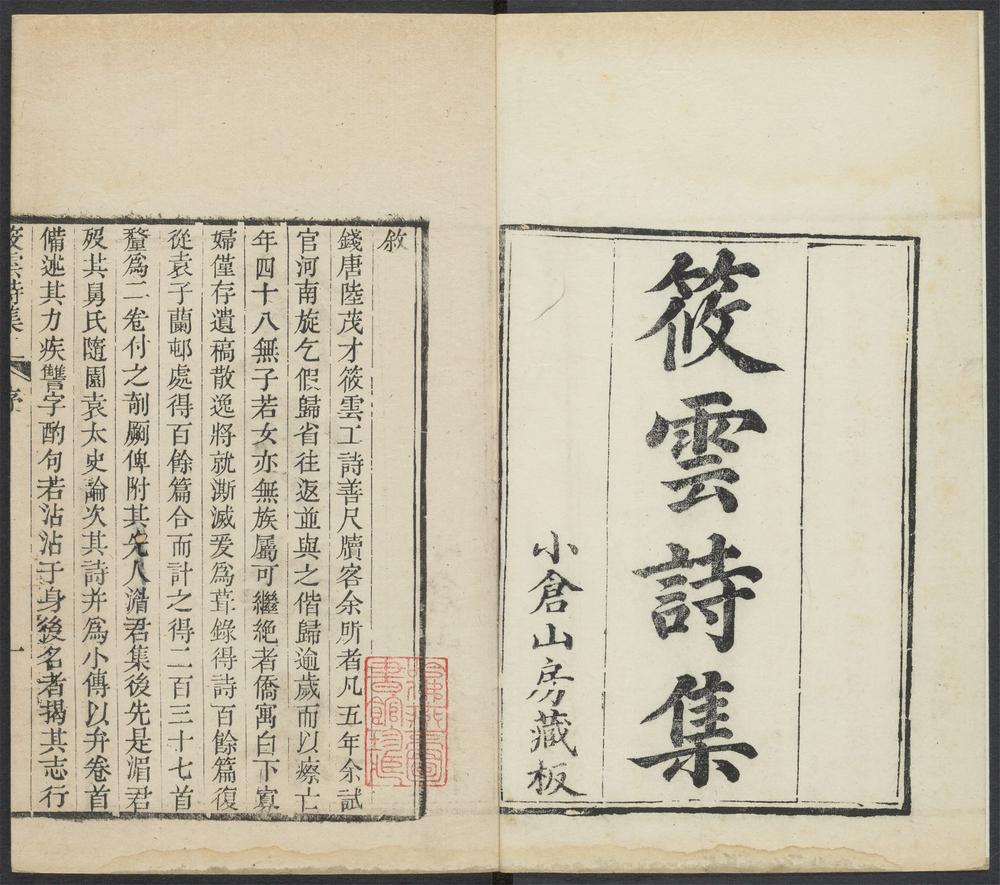 筱雲詩集
小倉山房藏板
敘
錢唐陸茂才筱雲工詩善尺牘客余所者凡五年余試
官河南旋乞假歸省往返並與之偕歸逾歲而以瘵亡
年四十八無子若女亦無族屬可繼絶者僑寓白下寡
婦僅存遺稿散逸將就澌滅爰爲葺錄得詩百餘篇復
從袁子蘭邨處得百餘篇合而計之得二百三十七首
釐爲二卷付之剞劂俾附其先人湄君集後先是湄君
歿其舅氏隨園袁太史論次其詩并爲小傳以弁卷首
備述其力疾讐字酌句若沾沾于身後名者揭其志行
筱雲詩集 序 一